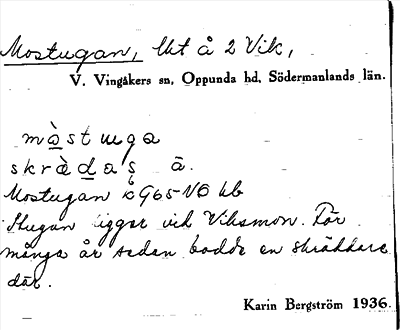 Mostugan, lht å 2 Vik,
V. Vingåkers sn, Oppunda hd, Södermanlands län.
màstuga
skrὲdas ä.
Mostugan k G65-V6 kb
Stugan ligger vid Viksmon. För
många år sedan bodde en skräddare
där.
Karin Bergström 1936.